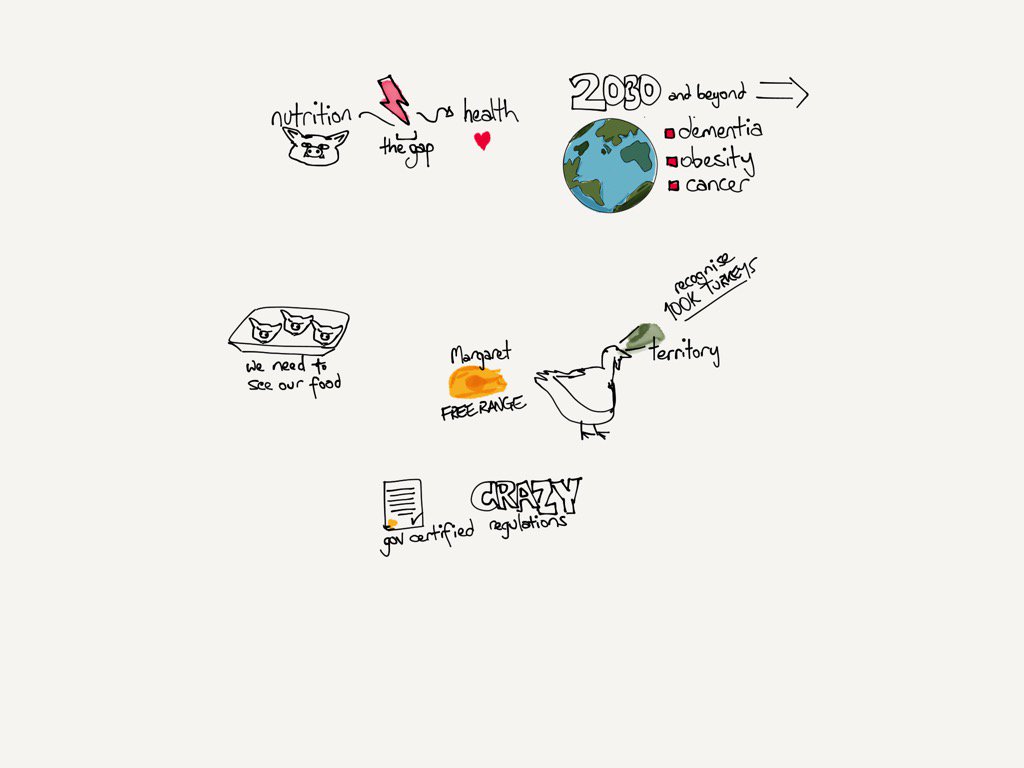 nutrition
the gap
health
2030 and beyond
dementia
obesity
cancer
we need to
see our food
Margaret
FREE RANGE
recognise
100K TURKEYS
territory
gov certified
CRAZY
regulations